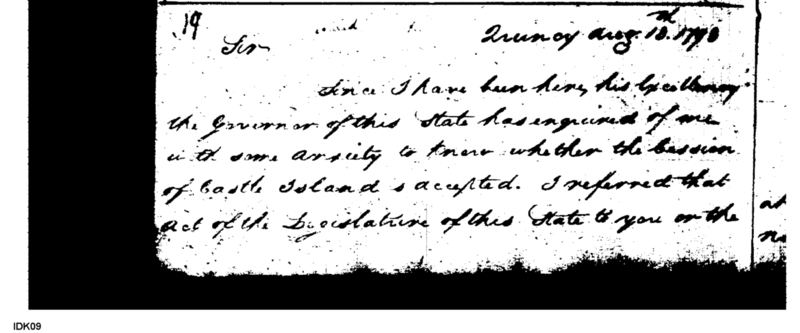 19
Quincy Aug. 18th. 1798
Sir
Since I have been here, his Excellency
the Governor of this State has enquired of me
with some anxiety to know whether the Cession
of Castle Island is accepted. I referred that
Act of the Legislature of this State to you on the
at
IDK09